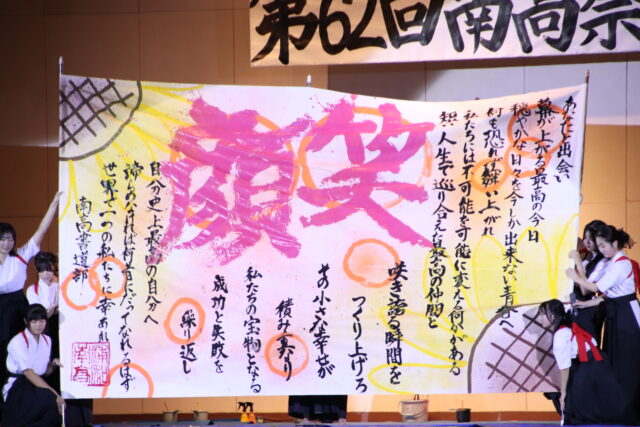 第62回南高祭
あなたと出会い
幕が上がる最高の今日
穏やかな日々を今しか出来ない青春へ
何も恐れず舞い上がれ
私たちには不可能を可能に変える何かがある
短い人生で巡り合えた最高の仲間と
笑顔
咲き誇る瞬間を
つくり上げろ
その小さな幸せが
積み重なり
私たちの宝物となる
成功と失敗を
繰り返し
自分史上最高の自分へ
諦めなければ何度
世界で一つの私たちに幸あれ
南高書道部